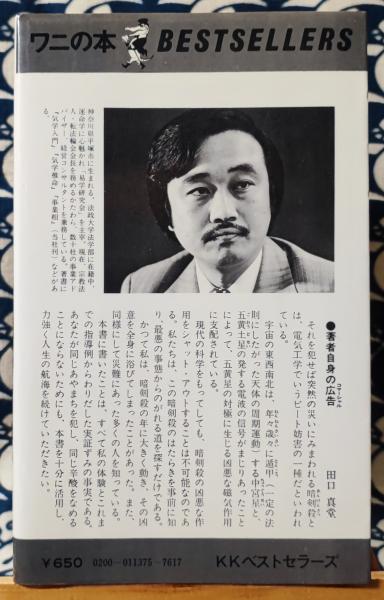 ワニの本
BESTSELLERS
神奈川県平塚市に生まれる。法政大学法学部に在籍中、
運命学に心魅かれ「易学研究会」を主宰。現在、宗教法
人・転法輪会会長を務めるかたわら、数十社の事業アド
バイザー、経営コンサルタントを兼務している。著書に
『気学入門』『気学推命』『事業相』（当社刊）などがあ
る。
●著者自身の広告
コマーシャル
田口真堂
それを犯せば突然の災いにみまわれる暗剣殺と
あんけんさつ
は、電気工学でいうビート妨害の一種だといわれ
ている。
宇宙の東西南北は、年々歳々に遁甲（一定の法
則にしたがった天体の周期運動）する中宮星と、
五黄土星の発する電波の信号がまじりあったこと
によって、五黄星の対極に生じる凶悪な磁気作用
に支配されている。
現代の科学をもってしても、暗剣殺の凶悪な作
用をシャット・アウトすることは不可能なのであ
る。私たちは、この暗剣殺のはたらきを事前に知
り、最悪の事態からのがれる道を探すだけである。
かつて私は、暗剣殺の年に大きく動き、その凶
意を全身に浴びてしまったことがあった。また、
同様にして災難にあった多くの人を知っている。
本書に書いたことは、すべて私の体験とこれま
での指導例からわりだした実証ずみの事実である。
あなたが同じあやまちを犯し、同じ辛酸をなめる
ことにならないためにも、本書を十分に活用し、
力強く人生の航海を続けていただきたい。
￥650
0200―011375―7617
KKベストセラーズ